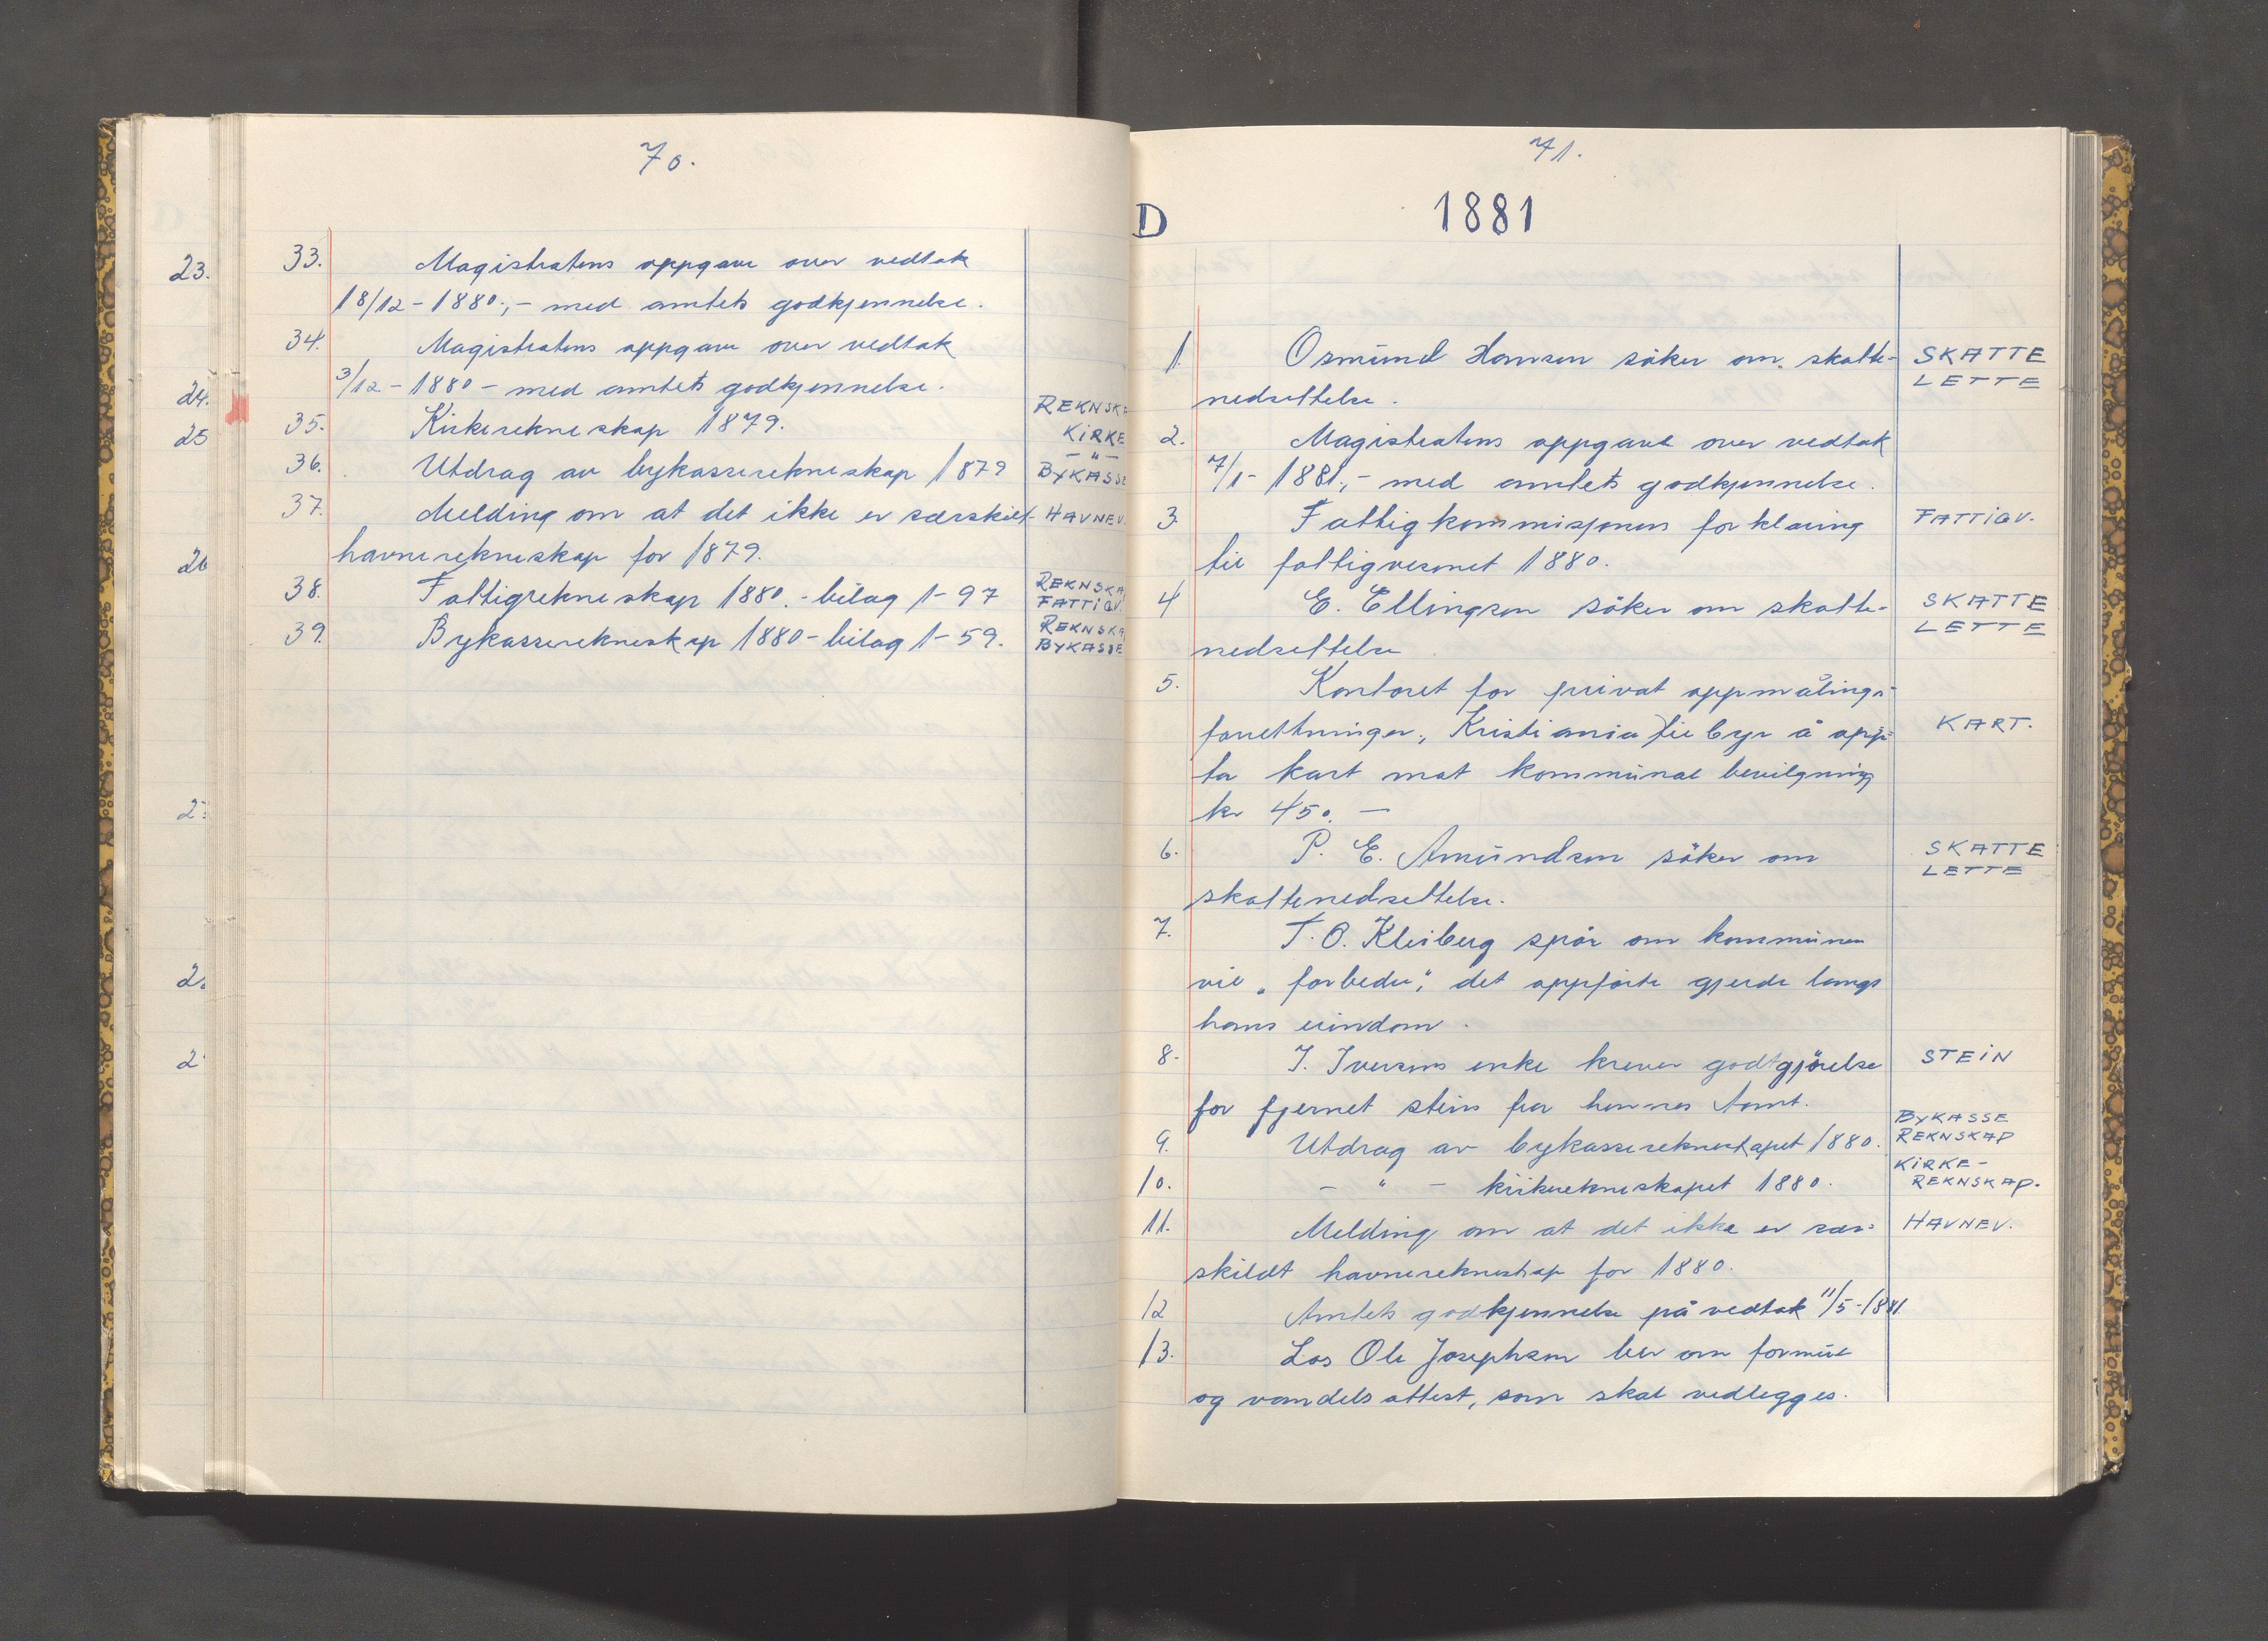 70.
23.
24.
25
26
2
2
2
33. Magistratens oppgave over vedtak
18/12 - 1880;- med amtets godkjennelse.
34. Magistratens oppgave over vedtak
3/12 - 1880 - med amtets godkjennelse.
35. Kirkerekneskap 1879. REKNSKA KIRKE
36. Utdrag av bykasserekneskap 1879 - " - BYKASSE
37. Melding om at det ikke er særskilt HAVNEV.
havnerekneskap for 1879.
38. Fattigrekneskap 1880.- bilag 1-97 REKNSKA FATTIGV.
39. Bykasserekneskap 1880 - bilag 1-59. REKNSKA BYKASSE
71.
D 1881
1. Osmund Hansen söker om skatte- SKATTE
nedsettelse. LETTE
2. Magistratens oppgave over vedtak
7/1- 1881;- med amtets godkjennelse.
3. Fattigkommisjonens forklaring FATTIGV.
til fattigvesenet 1880.
4 E. Ellingsen söker om skatte- SKATTE
nedsettelse LETTE
5. Kontoret for privat oppmålings-
forretninger, Kristiania tilbyr å opp- KART.
ta kart mot kommunal bevilgning
kr 450.—
6. P. E. Amundsen söker om SKATTE
skattenedsettelse. LETTE
7. T. O. Kleiberg spör om kommunen
vil "forbedre" det oppförte gjerde langs
hans eiendom.
8. J. Iversens enke krever godtgjörelse STEIN
for fjernet stein fra hennes tomt.
9. Utdrag av bykasserekneskapet 1880. BYKASSE REKNSKAP
10. - " - kirkerekneskapet 1880. KIRKE- REKNSKAP.
11. Melding om at det ikke er sær- HAVNEV.
skildt havnerekneskap for 1880.
12 Amtets godkjennelse på vedtak 11/5-1881
13. Los Ole Josephsen ber om formue
og vandelsattest, som skal vedlegges.